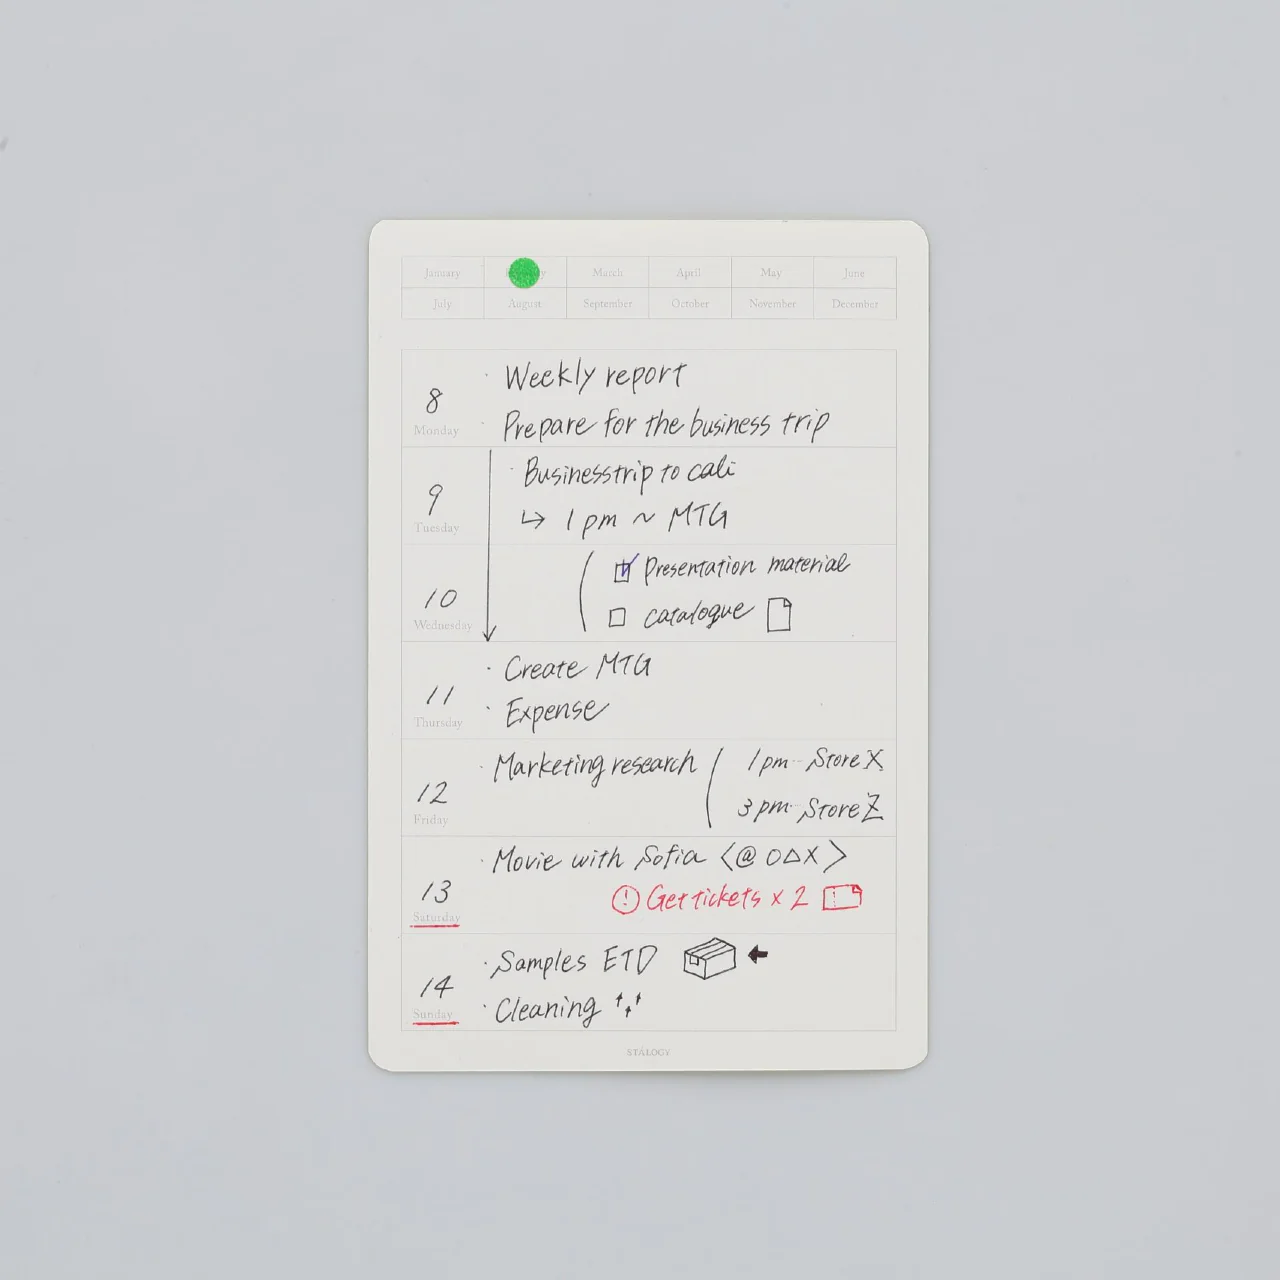 January March April May June
July August September October November December
8 Monday
· Weekly report
· Prepare for the business trip
9 Tuesday
· Business trip to cali
↳ 1 pm ~ MTG
10 Wednesday
☑ Presentation material
☐ catalogue
11 Thursday
· Create MTG
· Expense
12 Friday
· Marketing research ( 1 pm - Store X
3 pm - Store Z
13 Saturday
· Movie with Sofia <@ O△X>
! Get tickets x 2
14 Sunday
· Samples ETD ←
· Cleaning
STÁLOGY